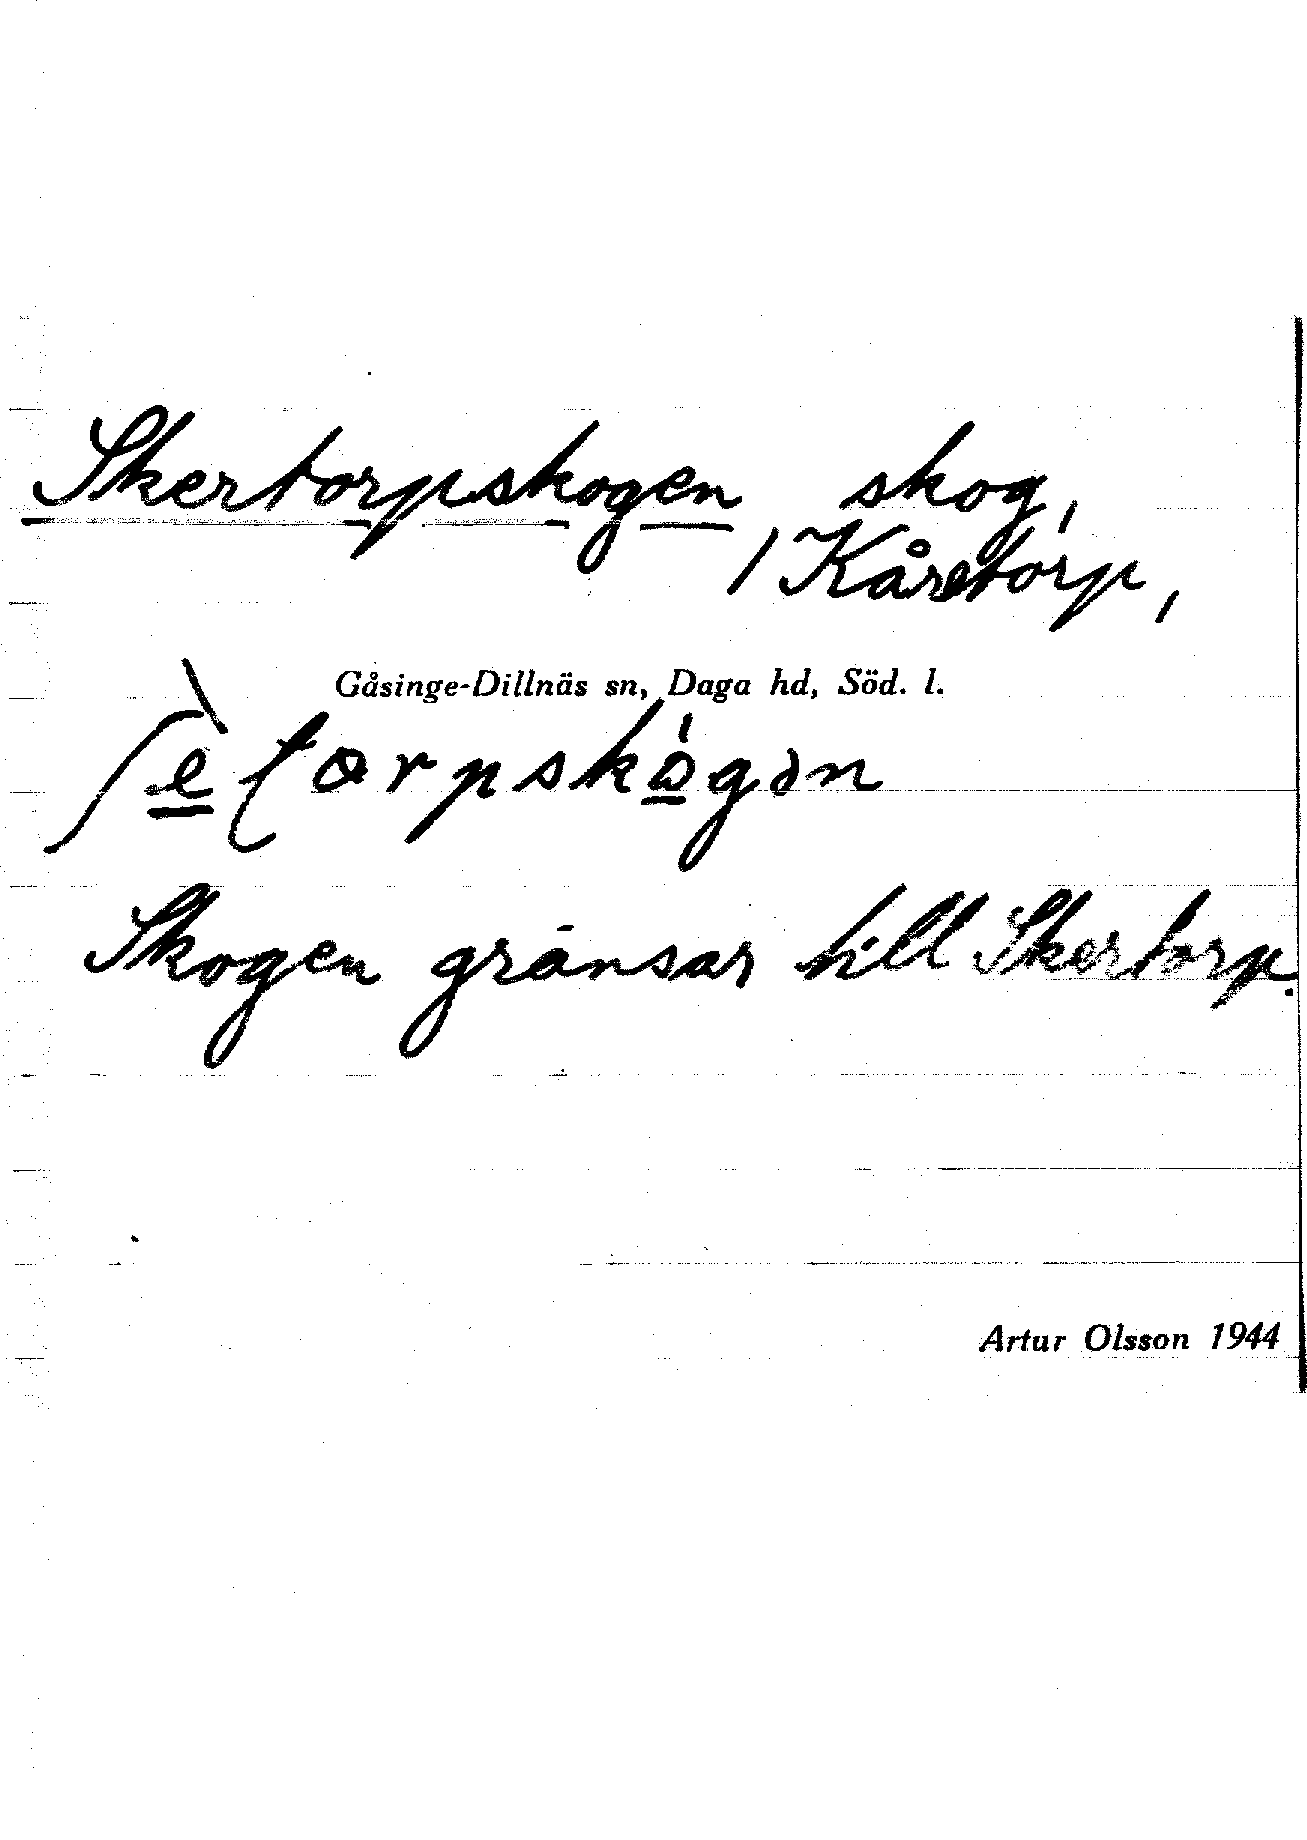 Skertorpskogen skog,
/ Kåretorp,
Gåsinge-Dillnäs sn, Daga hd, Söd. l.
ʃè̱ʈorpskó̱gən
Skogen gränsar till Skertorp.
Artur Olsson 1944